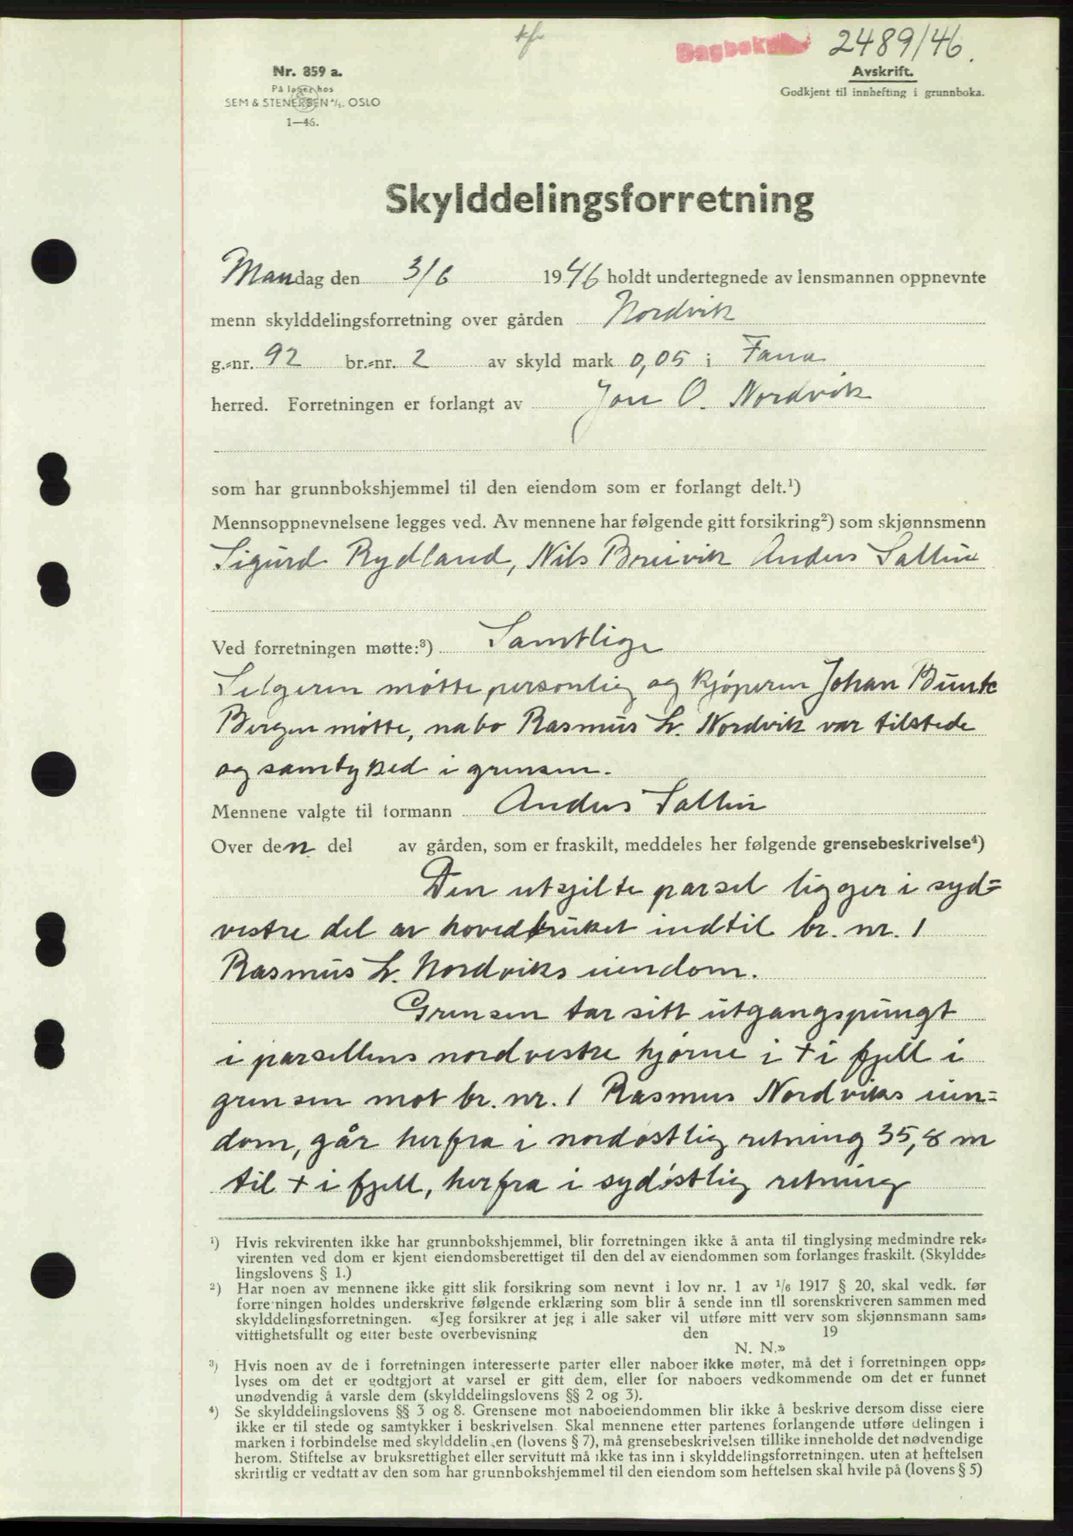 Dagbok 2489/46.
Nr. 859 a.
På lager hos
SEM & STENERSEN A/S. OSLO
1—46.
Avskrift.
Godkjent til innhefting i grunnboka.
Skylddelingsforretning
Mandag den 3/6 1946 holdt undertegnede av lensmannen oppnevnte
menn skylddelingsforretning over gården Nordvik
g.-nr. 92 br.-nr. 2 av skyld mark 0,05 i Fana
herred. Forretningen er forlangt av Jon O. Nordvik
som har grunnbokshjemmel til den eiendom som er forlangt delt.¹)
Mennsoppnevnelsene legges ved. Av mennene har følgende gitt forsikring²) som skjønnsmenn
Sigurd Rydland, Nils Breivik Anders
Ved forretningen møtte:³) Samtlige
Selgeren møtte personlig og kjøperen Johan
Bergen møtte, nabo Rasmus L. Nordvik var tilstede
og samtykked i grensen.
Mennene valgte til formann Anders
Over den del av gården, som er fraskilt, meddeles her følgende grensebeskrivelse⁴)
Den utsjilte parsel ligger i syd=
vestre del av hovedbruket indtil br. nr. 1
Rasmus L. Nordviks eiendom.
Grensen tar sitt utgangspungt
i parsellens nordvestre hjørne i + i fjell i
grensen mot br. nr. 1 Rasmus Nordviks eien=
dom, går herfra i nordøstlig retning 35,8 m
til + i fjell, herfra i sydøstlig retning
¹) Hvis rekvirenten ikke har grunnbokshjemmel, blir forretningen ikke å anta til tinglysing medmindre rek-
virenten ved dom er kjent eiendomsberettiget til den del av eiendommen som forlanges fraskilt. (Skyldde-
lingslovens § 1.)
²) Har noen av mennene ikke gitt slik forsikring som nevnt i lov nr. 1 av 1/6 1917 § 20, skal vedk. før
forretningen holdes underskrive følgende erklæring som blir å sende inn til sorenskriveren sammen med
skylddelingsforretningen. «Jeg forsikrer at jeg i alle saker vil utføre mitt verv som skjønnsmann sam-
vittighetsfullt og etter beste overbevisning den 19
N. N.»
³) Hvis noen av de i forretningen interesserte parter eller naboer ikke møter, må det i forretningen opp-
lyses om det er godtgjort at varsel er gitt dem, eller for naboers vedkommende om det er funnet
unødvendig å varsle dem (skylddelingslovens §§ 2 og 3).
⁴) Se skylddelingslovens §§ 3 og 8. Grensene mot naboeiendommen blir ikke å beskrive dersom disse eiere
ikke er til stede og samtykker i beskrivelsen. Skal mennene etter partenes forlangende utføre delingen i
marken i forbindelse med skylddelingen (lovens § 7), må grensebeskrivelsen tillike inneholde det nødvendige
herom. Stiftelse av bruksrettighet eller servitutt må ikke tas inn i skylddelingsforretningen. uten at heftelsen
skriftlig er vedtatt av den som har grunnbokshjemmel til den eiendom som heftelsen skal hvile på (lovens § 5)